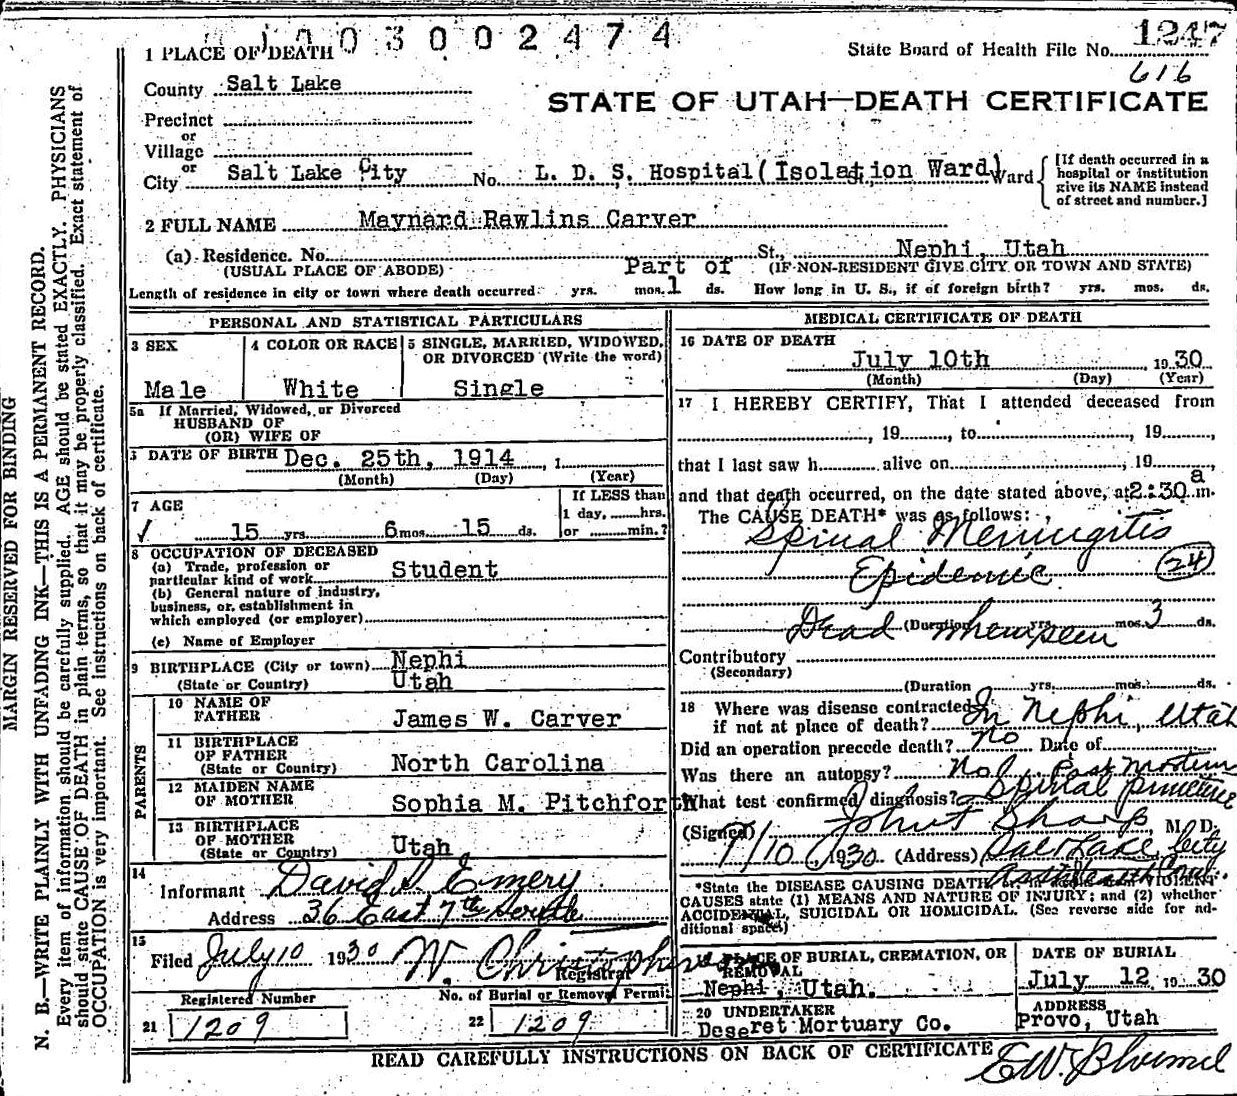 1003002474
1 PLACE OF DEATH
State Board of Health File No. 1247
616
County Salt Lake
STATE OF UTAH—DEATH CERTIFICATE
Precinct
or
Village
or
City Salt Lake City No. L. D. S. Hospital (Isolation Ward) Ward
[If death occurred in a
hospital or institution
give its NAME instead
of street and number.]
2 FULL NAME Maynard Rawlins Carver
(a) Residence. No. St., Nephi, Utah
(USUAL PLACE OF ABODE) (IF NON-RESIDENT GIVE CITY OR TOWN AND STATE)
Part of
Length of residence in city or town where death occurred yrs. mos. 1 ds. How long in U. S., if of foreign birth? yrs. mos. ds.
PERSONAL AND STATISTICAL PARTICULARS
3 SEX
Male
4 COLOR OR RACE
White
5 SINGLE, MARRIED, WIDOWED,
OR DIVORCED (Write the word)
Single
5a If Married, Widowed, or Divorced
HUSBAND OF
(OR) WIFE OF
DATE OF BIRTH Dec. 25th, 1914, 1
(Month) (Day) (Year)
7 AGE
15 yrs. 6 mos. 15 ds.
If LESS than
1 day, hrs.
or min.?
8 OCCUPATION OF DECEASED
(a) Trade, profession or
particular kind of work Student
(b) General nature of industry,
business, or establishment in
which employed (or employer)
(c) Name of Employer
9 BIRTHPLACE (City or town) Nephi
(State or Country) Utah
PARENTS
10 NAME OF
FATHER James W. Carver
11 BIRTHPLACE
OF FATHER
(State or Country) North Carolina
12 MAIDEN NAME
OF MOTHER Sophia M. Pitchforth
13 BIRTHPLACE
OF MOTHER
(State or Country) Utah
14
Informant David S Emery
Address 36 East 7th South
15
Filed July 10 1930 W. Christophersen
Registrar
Registered Number
21 1209
No. of Burial or Removal Permit
22 1209
MEDICAL CERTIFICATE OF DEATH
16 DATE OF DEATH
July 10th 1930
(Month) (Day) (Year)
17 I HEREBY CERTIFY, That I attended deceased from
, 19 , to , 19 ,
that I last saw h alive on , 19 ,
and that death occurred, on the date stated above, at 2:30 a m.
The CAUSE DEATH* was as follows:
Spinal Meningitis
Epidemic (24)
(Duration yrs. mos. 3 ds.
Dead when seen
Contributory
(Secondary)
(Duration yrs. mos. ds.
18 Where was disease contracted
if not at place of death? In Nephi, Utah
Did an operation precede death? No Date of
Was there an autopsy? No Post Mortem
What test confirmed diagnosis? Spinal puncture
(Signed) John T Sharp M. D.
7/10 1930 (Address) Salt Lake City
*State the DISEASE CAUSING DEATH, or, in deaths from VIOLENT
CAUSES state (1) MEANS AND NATURE OF INJURY; and (2) whether
ACCIDENTAL, SUICIDAL OR HOMICIDAL. (See reverse side for ad-
ditional space.)
PLACE OF BURIAL, CREMATION, OR
REMOVAL
Nephi, Utah.
DATE OF BURIAL
July 12 1930
20 UNDERTAKER
Deseret Mortuary Co.
ADDRESS
Provo, Utah
READ CAREFULLY INSTRUCTIONS ON BACK OF CERTIFICATE
MARGIN RESERVED FOR BINDING
N. B.—WRITE PLAINLY WITH UNFADING INK—THIS IS A PERMANENT RECORD.
Every item of information should be carefully supplied. AGE should be stated EXACTLY. PHYSICIANS
should state CAUSE OF DEATH in plain terms, so that it may be properly classified. Exact statement of
OCCUPATION is very important. See instructions on back of certificate.